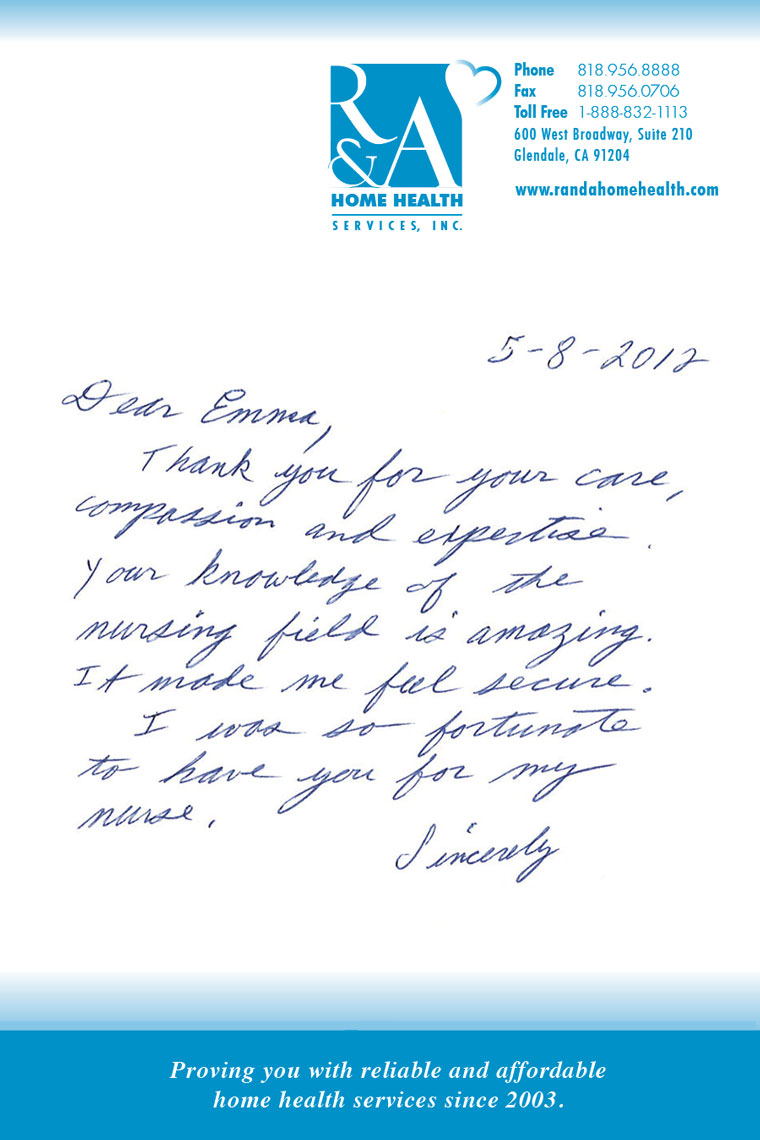 R
&A
HOME HEALTH
SERVICES, INC.
Phone 818.956.8888
Fax 818.956.0706
Toll Free 1-888-832-1113
600 West Broadway, Suite 210
Glendale, CA 91204
www.randahomehealth.com
5-8-2012
Dear Emma,
Thank you for your care,
compassion and expertise.
Your knowledge of the
nursing field is amazing.
It made me feel secure.
I was so fortunate
to have you for my
nurse.
Sincerely
Proving you with reliable and affordable
home health services since 2003.